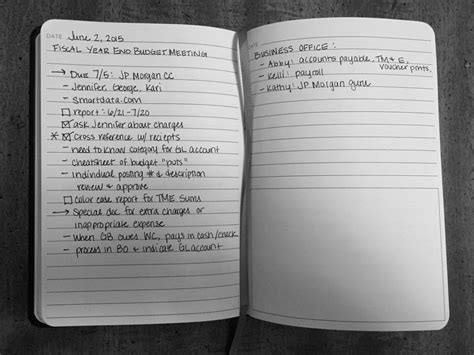 DATE June 2, 2015
FISCAL YEAR END BUDGET MEETING
→ Due 7/5: JP Morgan CC
- Jennifer, George, Kari
- smartdata.com
☐ report: 6/21 - 7/20
☑ ask Jennifer about charges
* ☑ Cross reference w/ receipts
- need to know category for GL account
- cheatsheet of budget "pots"
- individual posting # & description
review & approve
☐ color case report for TME Sums
→ Special doc for extra charges or
inappropriate expense
- when GB owes WC, pays in cash/check
- process in BO & indicate GL account
DATE
BUSINESS OFFICE:
- Abby: accounts payable, TM& E,
voucher points,
- Kelli: payroll
- Kathy: JP Morgan